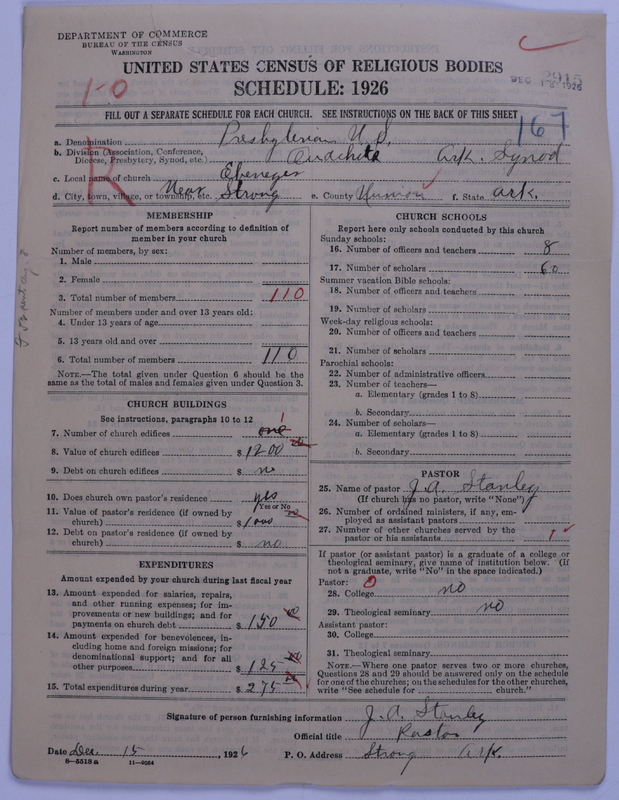 DEPARTMENT OF COMMERCE
BUREAU OF THE CENSUS
WASHINGTON
UNITED STATES CENSUS OF RELIGIOUS BODIES
SCHEDULE: 1926
DEC 15 1926
2915
1-0
R
167
FILL OUT A SEPARATE SCHEDULE FOR EACH CHURCH. SEE INSTRUCTIONS ON THE BACK OF THIS SHEET
a. Denomination Presbyterian U.S.
b. Division (Association, Conference, Diocese, Presbytery, Synod, etc.) Ouachita Ark. Synod
c. Local name of church Ebenezer
d. City, town, village, or township, etc. Near Strong e. County Union f. State Ark.
MEMBERSHIP
Report number of members according to definition of
member in your church
Number of members, by sex:
1. Male
2. Female
3. Total number of members 110
Number of members under and over 13 years old:
4. Under 13 years of age
5. 13 years old and over
6. Total number of members 110
NOTE.—The total given under Question 6 should be
same as the total of males and females given under Question 3.
CHURCH BUILDINGS
See instructions, paragraphs 10 to 12
7. Number of church edifices one 1
8. Value of church edifices $ 1200
9. Debt on church edifices $ no
10. Does church own pastor's residence yes
Yes or No
11. Value of pastor's residence (if owned by
church) $ 1000
12. Debt on pastor's residence (if owned by
church) $ no
EXPENDITURES
Amount expended by your church during last fiscal year
13. Amount expended for salaries, repairs,
and other running expenses; for im-
provements or new buildings; and for
payments on church debt $ 150 00
14. Amount expended for benevolences, in-
cluding home and foreign missions; for
denominational support; and for all
other purposes $ 125 00
15. Total expenditures during year $ 275
CHURCH SCHOOLS
Report here only schools conducted by this church
Sunday schools:
16. Number of officers and teachers 8
17. Number of scholars 60
Summer vacation Bible schools:
18. Number of officers and teachers
19. Number of scholars
Week-day religious schools:
20. Number of officers and teachers
21. Number of scholars
Parochial schools:
22. Number of administrative officers
23. Number of teachers—
a. Elementary (grades 1 to 8)
b. Secondary
24. Number of scholars—
a. Elementary (grades 1 to 8)
b. Secondary
PASTOR
25. Name of pastor J. A. Stanley
(If church has no pastor, write "None")
26. Number of ordained ministers, if any, em-
ployed as assistant pastors
27. Number of other churches served by the
pastor or his assistants 1
If pastor (or assistant pastor) is a graduate of a college or
theological seminary, give name of institution below. (If
not a graduate, write "No" in the space indicated.)
Pastor: 0
28. College no
29. Theological seminary no
Assistant pastor:
30. College
31. Theological seminary
NOTE.—Where one pastor serves two or more churches,
Questions 28 and 29 should be answered only on the schedule
for one of the churches; on the schedules for the other churches,
write "See schedule for church."
Signature of person furnishing information J. A. Stanley
Official title Pastor
Date Dec. 15, 1926 P. O. Address Strong Ark.
8—5518 a 11—9664